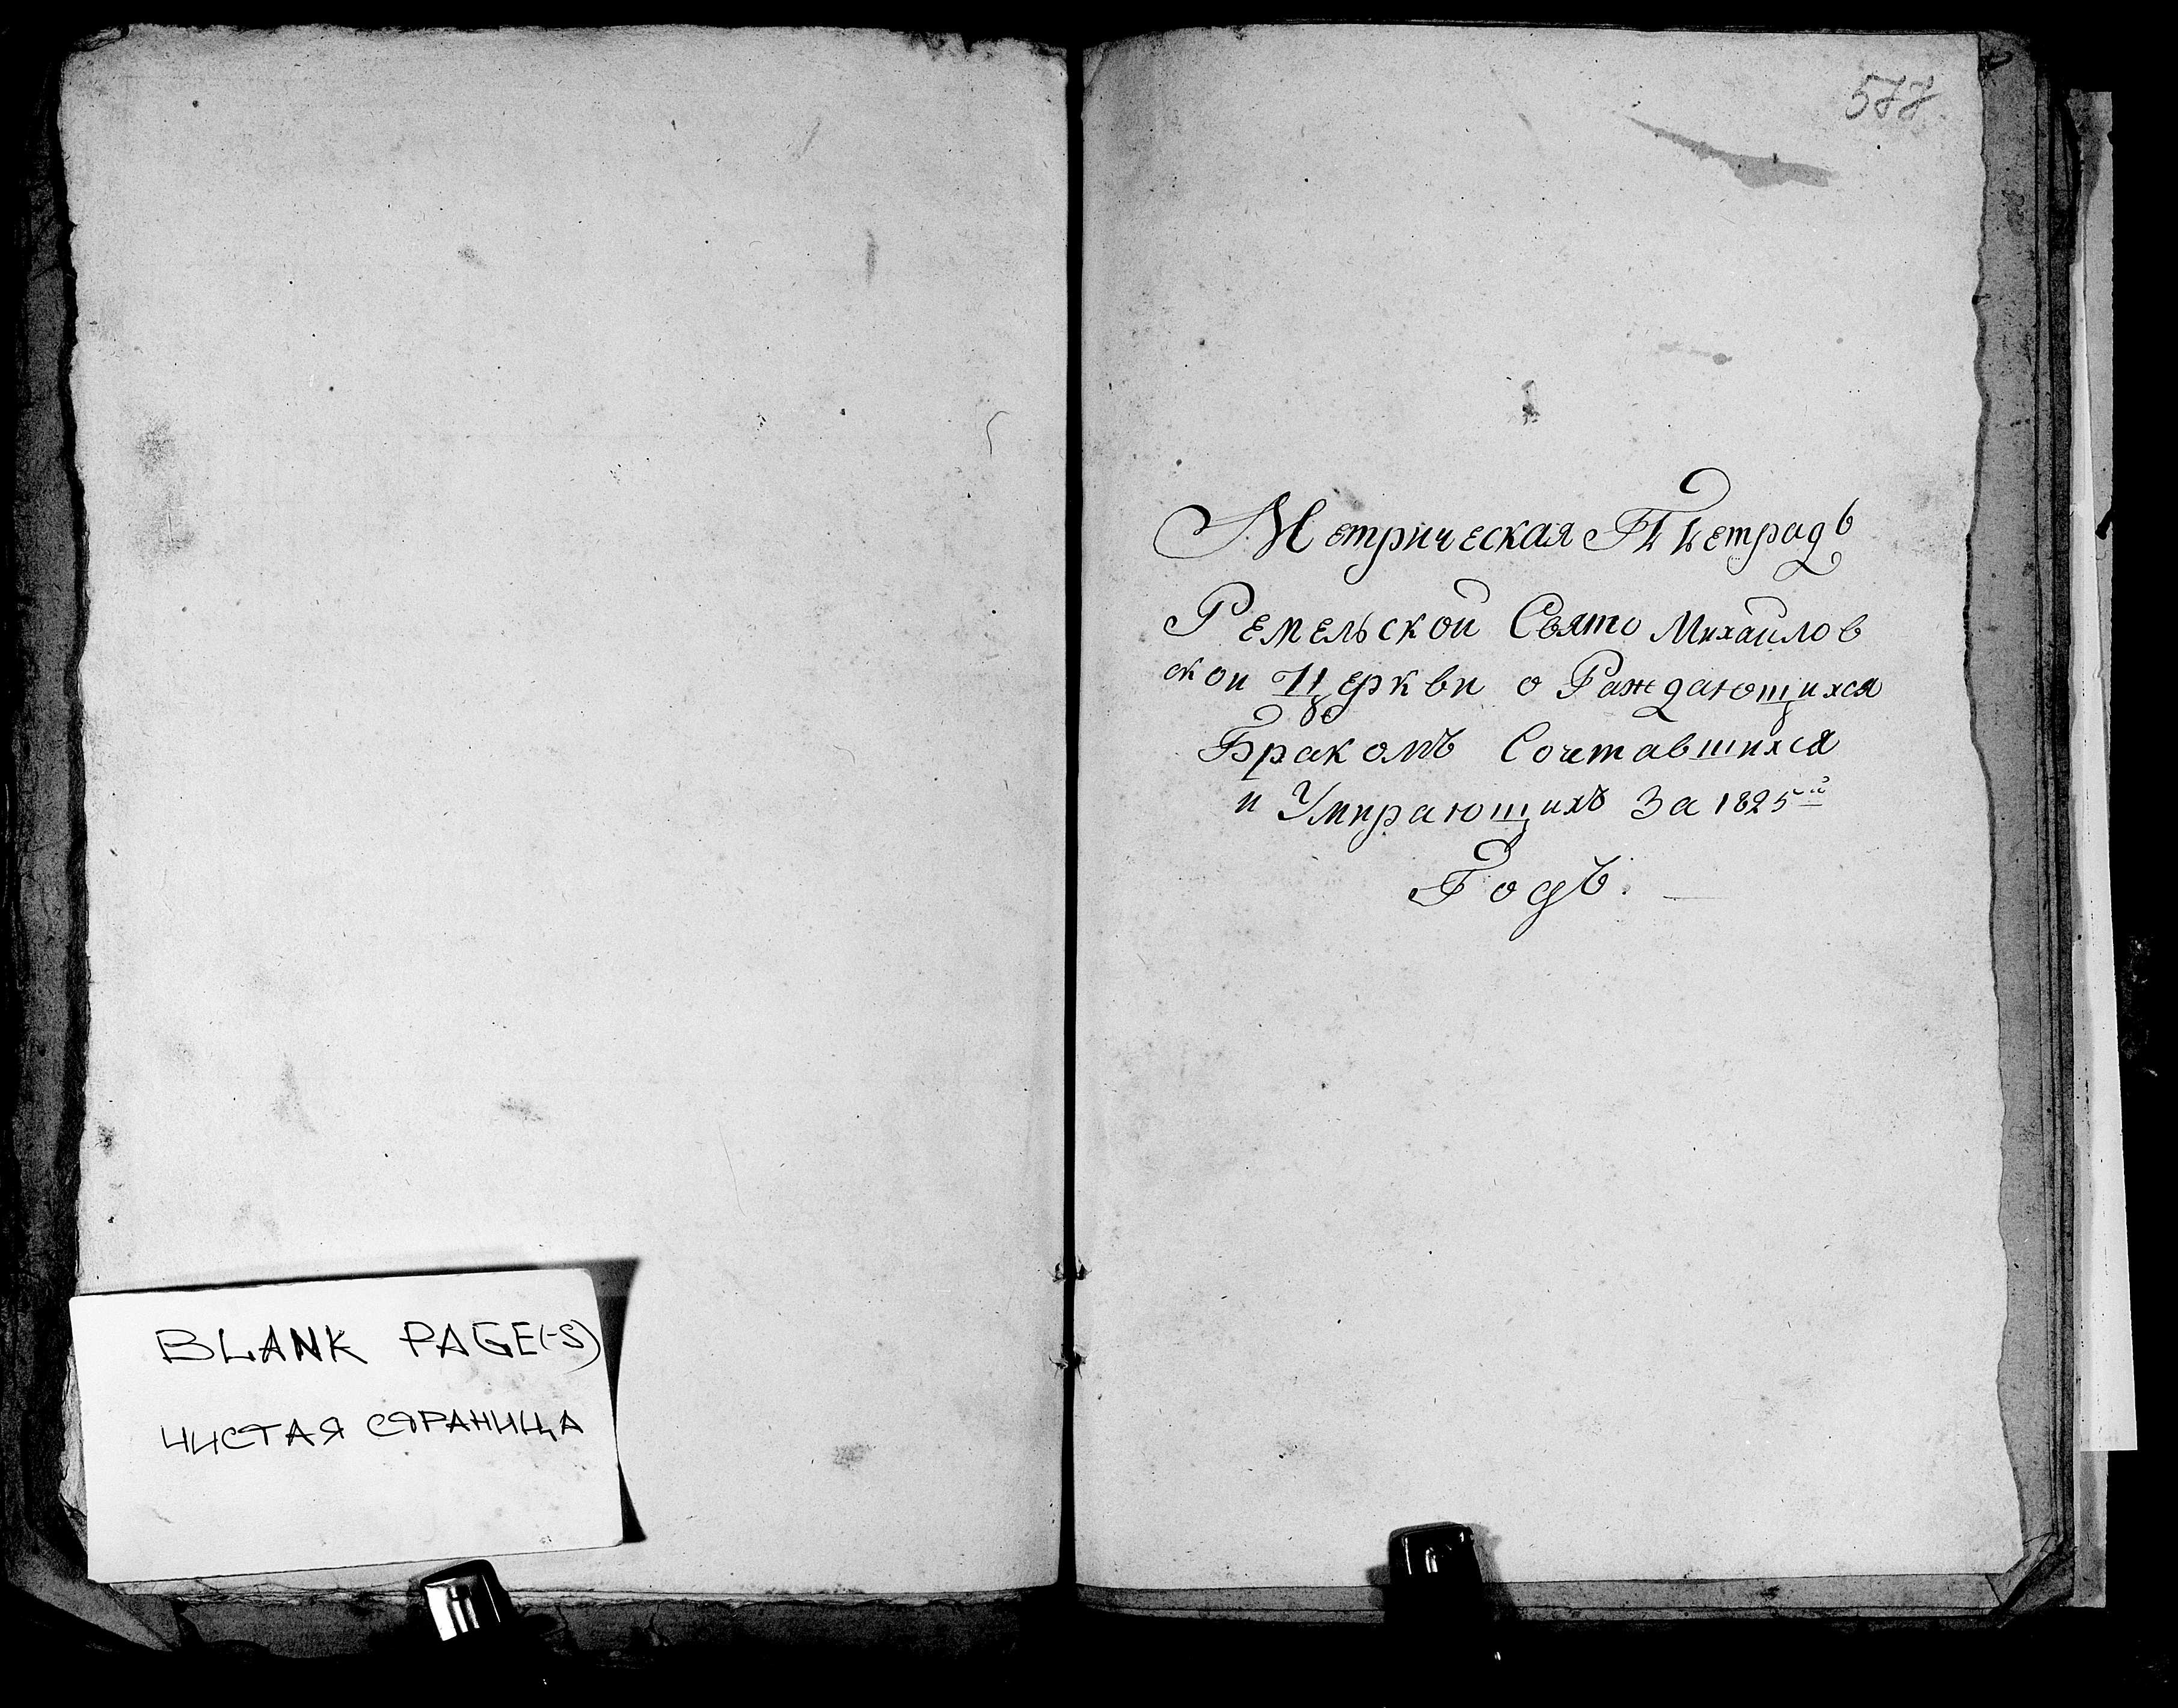 BLANK PAGE(-S)
ЧИСТАЯ СТРАНИЦА
577
Метрическая Тѣтрадь
Ремельской Свято Михайлов
ской Церкви о Раждающихся
Бракомъ Сочетавшихся
и Умирающихъ За 1825й
Годъ.